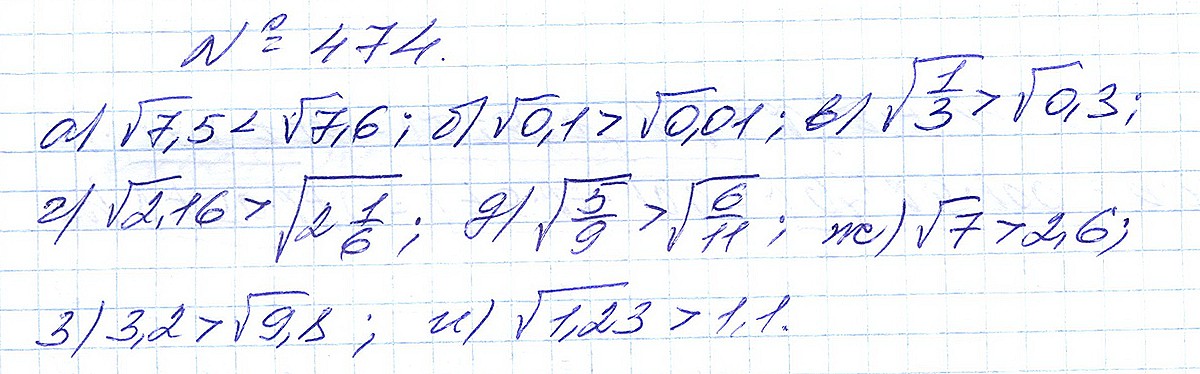 № 474.
а) √7,5 < √7,6; б) √0,1 > √0,01; в) √(1/3) > √0,3;
г) √2,16 > √(2 1/6); д) √(5/9) > √(6/11); ж) √7 > 2,6;
з) 3,2 > √9,8; и) √1,23 > 1,1.